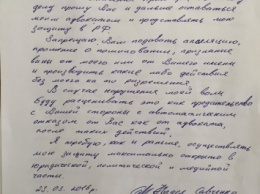 дел прошу Вас и дальше оставаться
моим адвокатом и представлять мою
защиту в РФ.
Запрещаю Вам подавать апелляцию,
прошение о помиловании, признание
вины от моего или от Вашего имени
и производить какие либо действия
без моего на то разрешения.
В случае нарушения моей воли
буду расценивать это как предательство
с Вашей стороны с автоматическим
отказом от Вас как от адвоката,
после таких действий.
Я требую, как и раньше, осуществлять
мою защиту максимально открыто в
юридической, политической и медийной
части.
23.03.2016г. Савченко